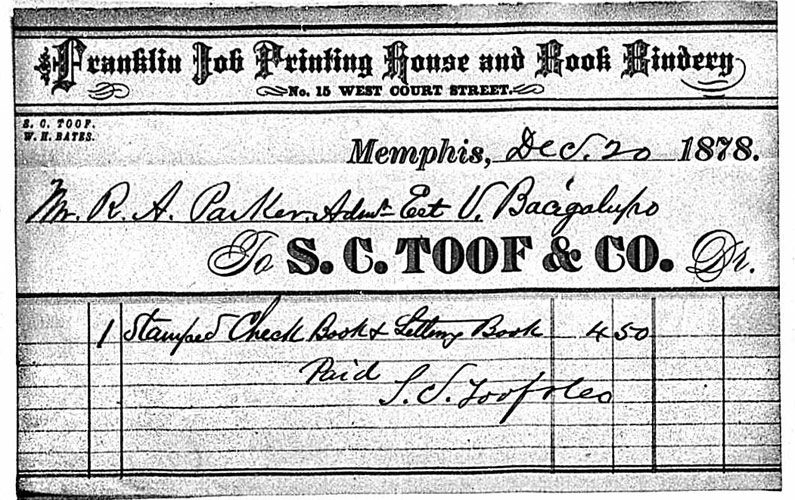 Franklin Job Printing House and Book Bindery
No. 15 WEST COURT STREET.
S. C. TOOF.
W. H. BATES.
Memphis, Dec. 20 1878.
Mr. R. A. Parker Admr Est V. Bacigalupo
To S. C. TOOF & CO. Dr.
1 Stamped Check Book & Lettering Book 4 50
Paid
S. C. Toof & Co